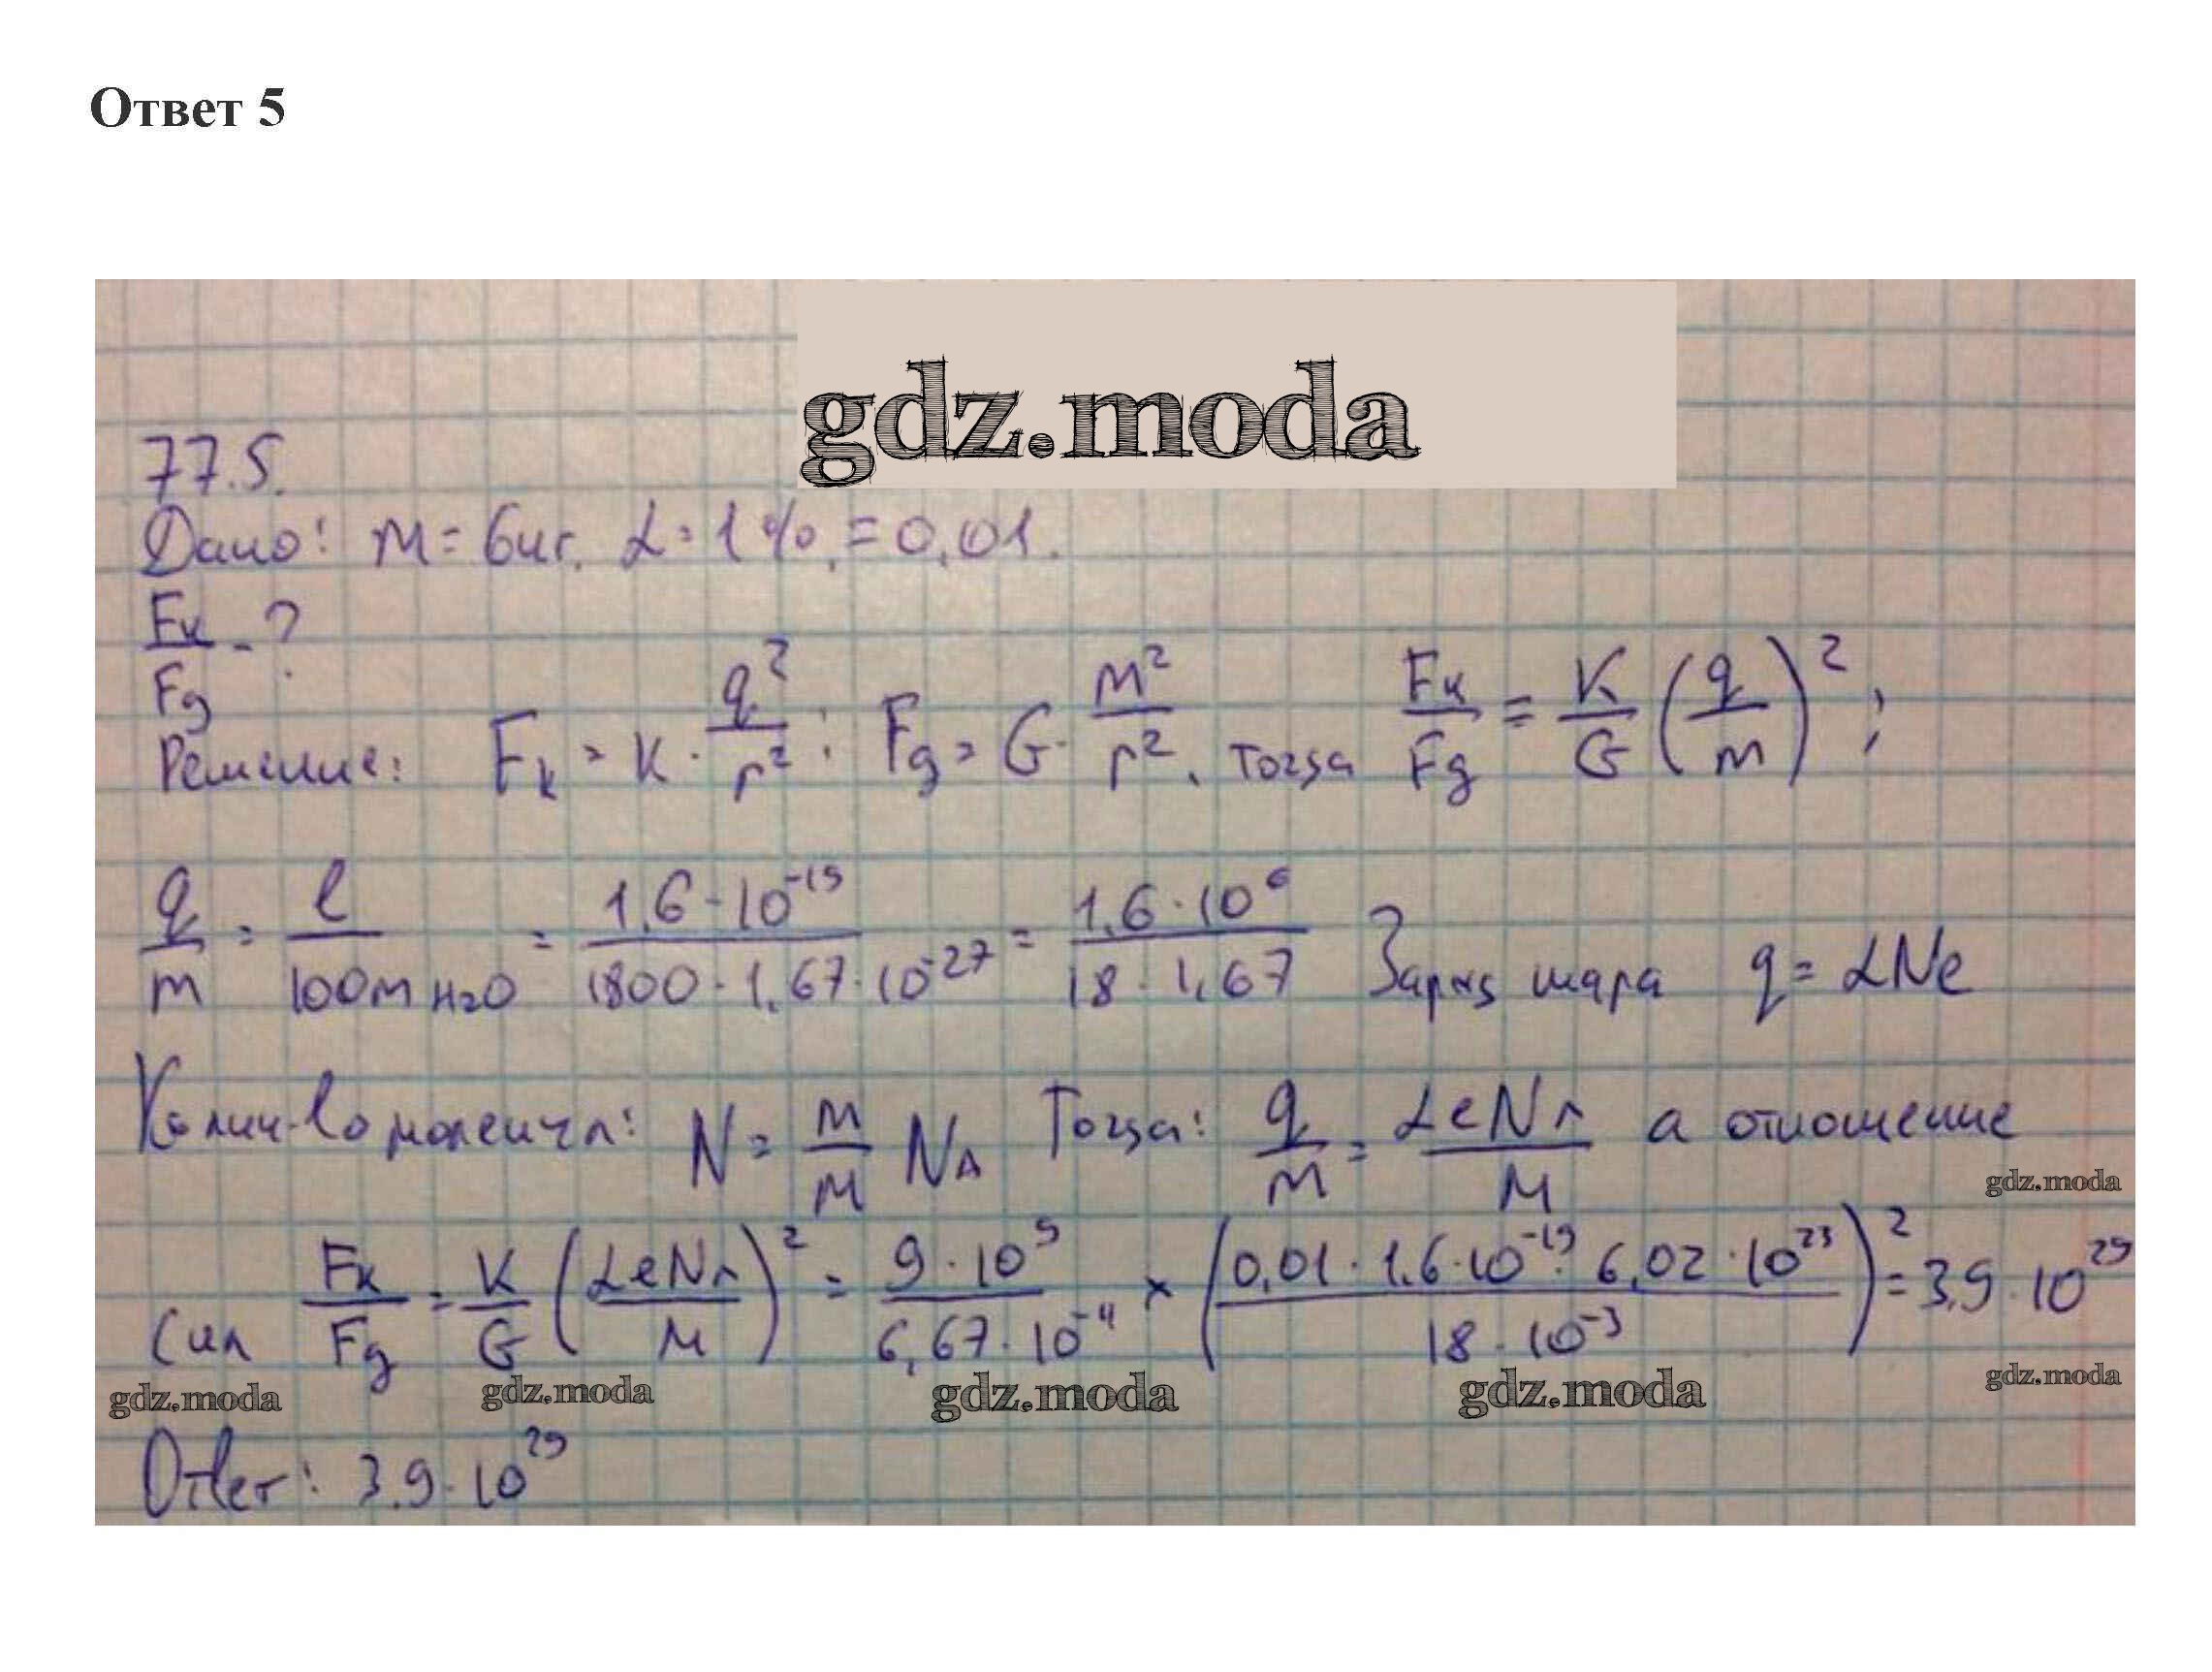 Ответ 5
gdz.moda
77.5.
Дано: m = 6 кг. α = 1% = 0,01.
Fк/Fg - ?
Решение: Fк = K · q²/r² ; Fg = G · m²/r². тогда Fк/Fg = K/G (q/m)² ;
q/m = e/100m H2O = 1,6 · 10⁻¹⁹/1800 · 1,67 · 10⁻²⁷ = 1,6 · 10⁶/18 · 1,67 Заряд шара q = αNe
Колич-во молекул: N = m/M NA Тогда: q/m = αeNA/M а отношение
gdz.moda
сил Fк/Fg = K/G (αeNA/M)² = 9 · 10⁹/6,67 · 10⁻¹¹ × (0,01 · 1,6 · 10⁻¹⁹ · 6,02 · 10²³/18 · 10⁻³)² = 3,9 · 10²⁹
gdz.moda gdz.moda gdz.moda gdz.moda gdz.moda
Ответ: 3.9 · 10²⁹